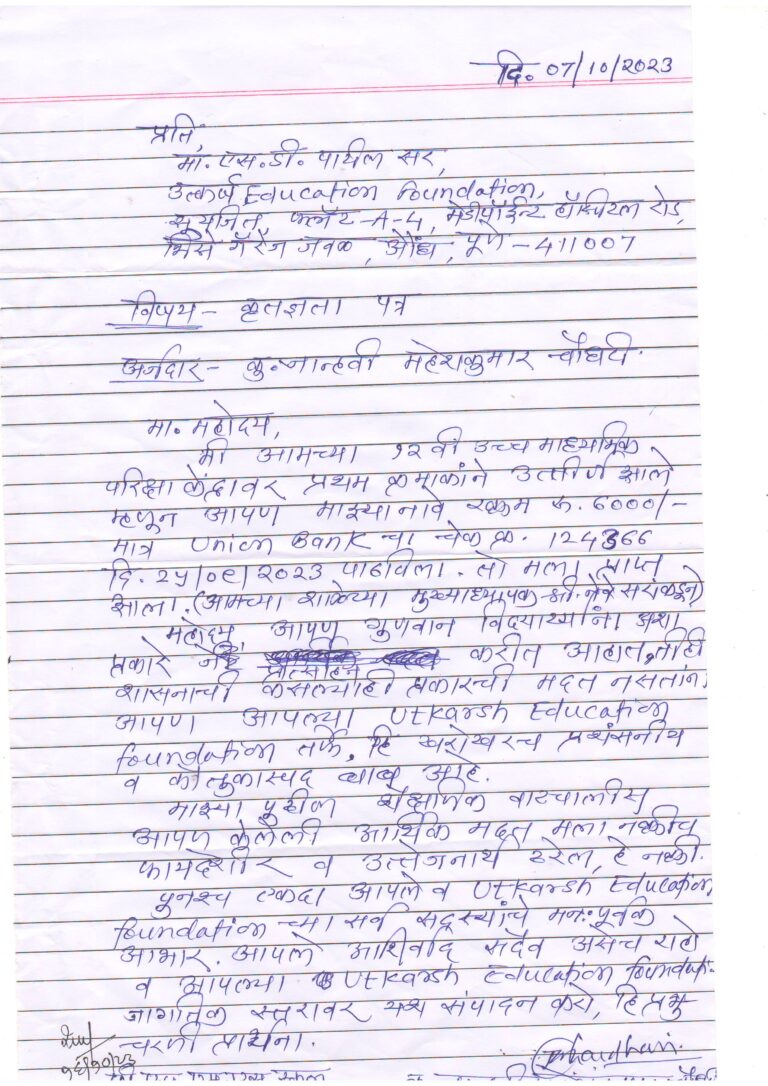 दि. 07/10/2023
प्रति,
मा. एस. डी. पाटील सर,
उत्कर्ष Education Foundation,
सुयोजित, फ्लॅट-A-4, मेडीपॉईन्ट हॉस्पिटल रोड,
भिसे गॅरेज जवळ, औंध, पूणे-411007
विषय - कृतज्ञता पत्र
अर्जदार - कु. जान्हवी महेशकुमार चौधरी.
मा. महोदय,
मी आमच्या १२ वी उच्च माध्यमिक
परिक्षा केंद्रावर प्रथम क्रमाकांने उत्तीर्ण झाले
म्हणून आपण माझ्यानावे रक्कम रु. 6000/-
मात्र Union Bank चा चेक क्र. 124366
दि. 25/09/2023 पाठविला. तो मला प्राप्त
झाला. (आमच्या शाळेच्या मुख्याध्यापक श्री. नेत्रे सरांकडून)
महोदय, आपण गुणवान विद्यार्थ्यांना अशा
प्रकारे प्रोत्साहन करीत आहात, तीही
शासनाची कसल्याही प्रकारची मदत नसतांना
आपण आपल्या Utkarsh Education
foundation तर्फे, हि खरोखरच प्रशंसनीय
व कौतुकास्पद बाब आहे.
माझ्या पुढील शैक्षणिक वाटचालीस
आपण केलेली आर्थिक मदत मला नक्कीच
फायदेशीर व उत्तेजनार्थ ठरेल, हे नक्की.
पुनश्च एकदा आपले व Utkarsh Education
foundation च्या सर्व सदस्यांचे मनःपूर्वक
आभार. आपले आशिर्वाद सदैव असेच राहो
व आपल्या Utkarsh Education foundati-
जागतिक स्तरावर यश संपादन करो, हि प्रभु
चरणी प्रार्थना.
Chaudhari.